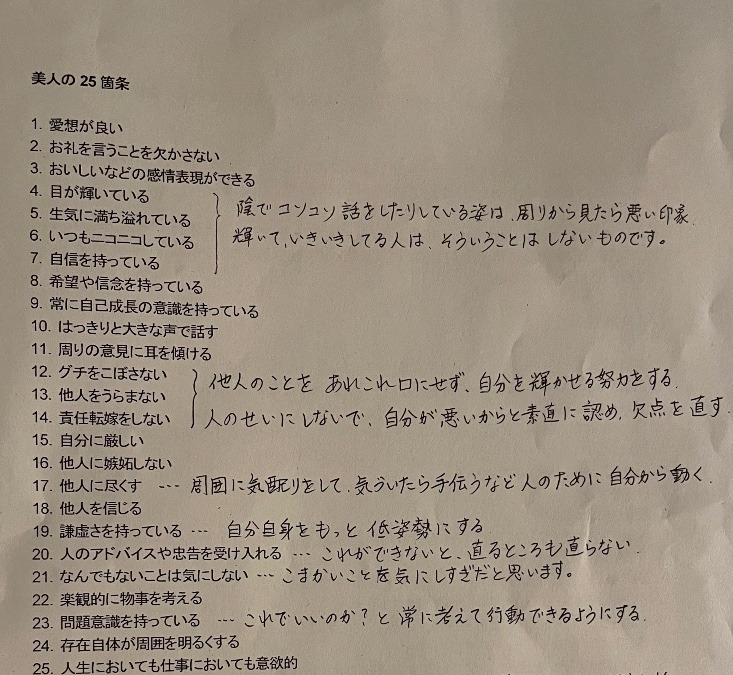 美人の 25 箇条
1. 愛想が良い
2. お礼を言うことを欠かさない
3. おいしいなどの感情表現ができる
4. 目が輝いている
5. 生気に満ち溢れている
6. いつもニコニコしている
7. 自信を持っている
陰でコソコソ話をしたりしている姿は、周りから見たら悪い印象
輝いて、いきいきしてる人は、そういうことはしないものです。
8. 希望や信念を持っている
9. 常に自己成長の意識を持っている
10. はっきりと大きな声で話す
11. 周りの意見に耳を傾ける
12. グチをこぼさない
13. 他人をうらまない
14. 責任転嫁をしない
他人のことを あれこれ口にせず、自分を輝かせる努力をする。
人のせいにしないで、自分が悪いからと素直に認め、欠点を直す。
15. 自分に厳しい
16. 他人に嫉妬しない
17. 他人に尽くす --- 周囲に気配りをして、気づいたら手伝うなど人のために自分から動く。
18. 他人を信じる
19. 謙虚さを持っている --- 自分自身をもっと低姿勢にする
20. 人のアドバイスや忠告を受け入れる --- これができないと、直るところも直らない。
21. なんでもないことは気にしない --- こまかいことを気にしすぎだと思います。
22. 楽観的に物事を考える
23. 問題意識を持っている --- これでいいのか?と常に考えて行動できるようにする。
24. 存在自体が周囲を明るくする
25. 人生においても仕事においても意欲的